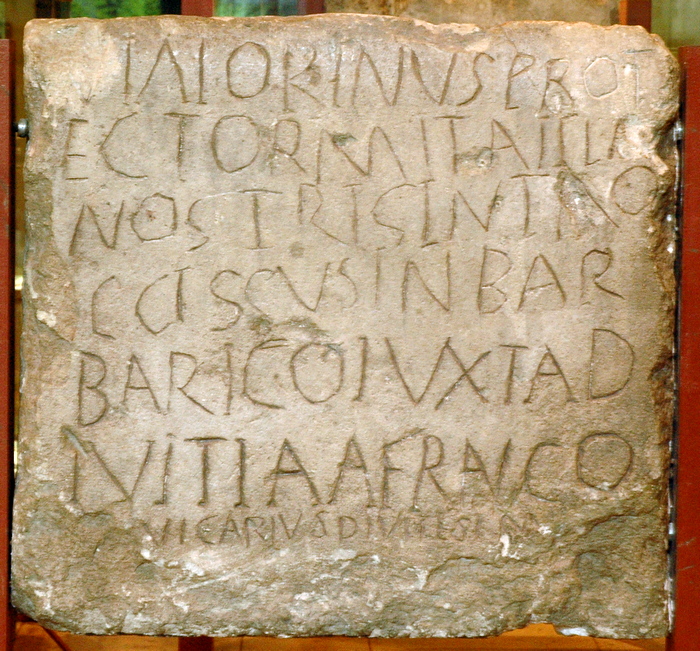 IAIORINVSPROT
ECTORMITAIIIA
NOSTRISINTAO
CCISCVSINBAR
BARICOIVXTAD
IVITIAAFRANCO
VICARIVSDIVITESIM